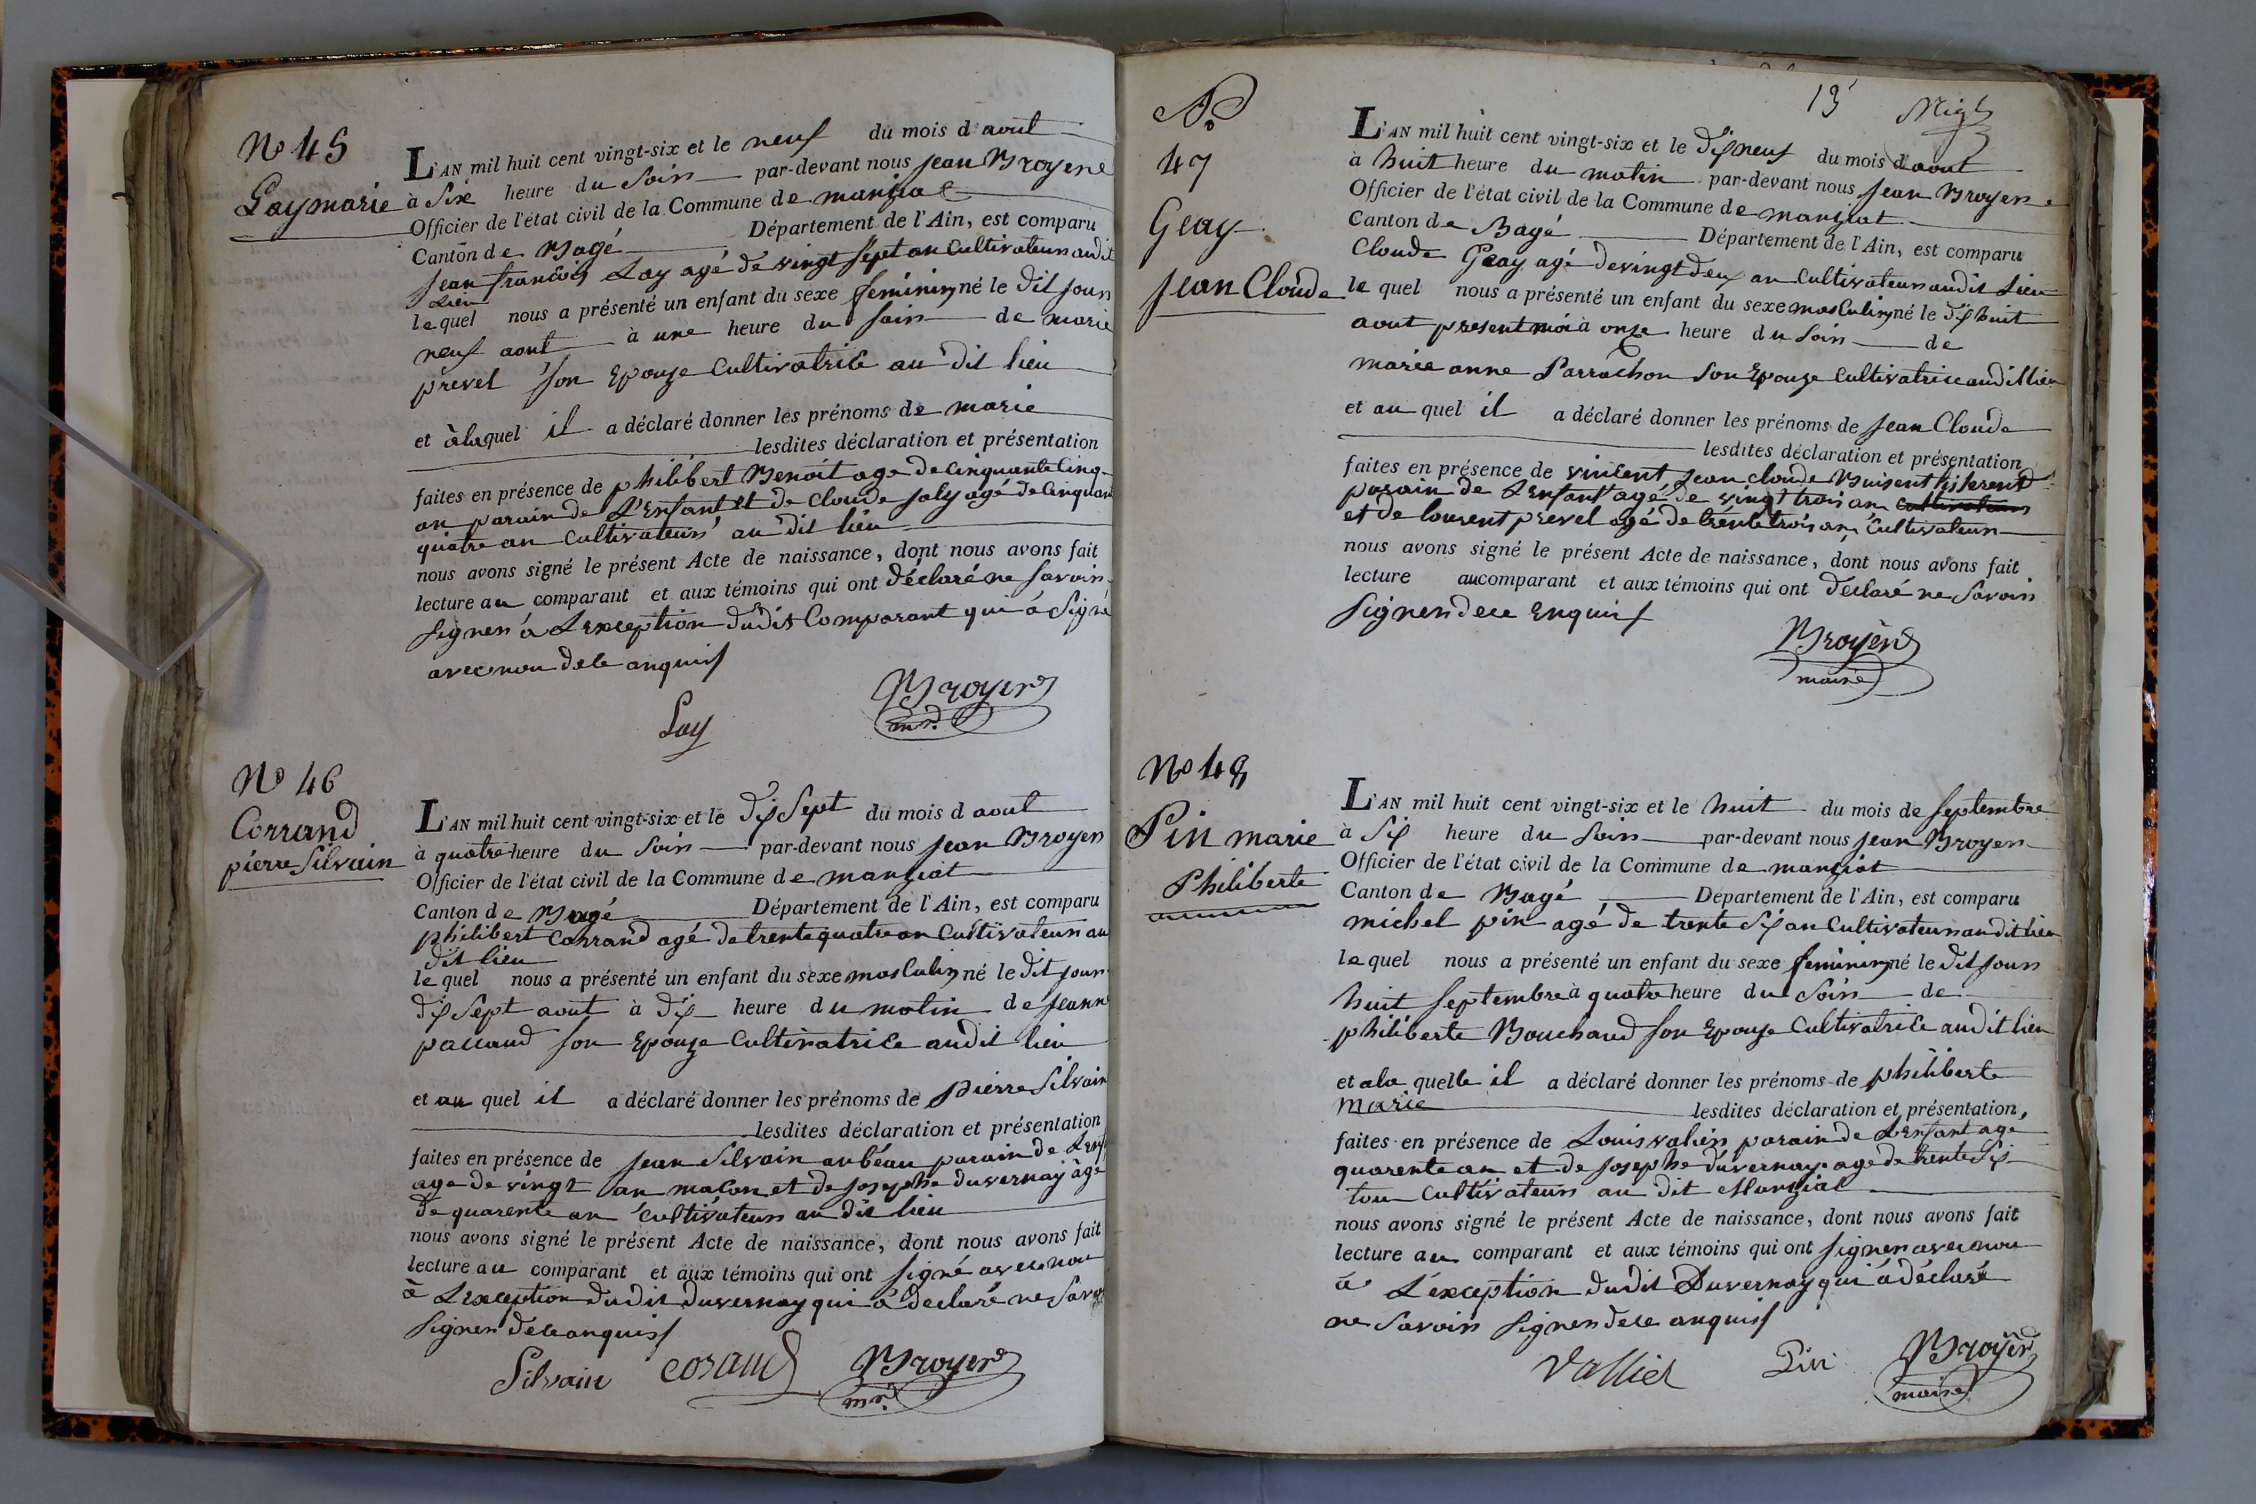 No 45
Lay marie
L'AN mil huit cent vingt-six et le neuf du mois d'aout
à Six heure du Soir par-devant nous Jean Broyer
Officier de l'état civil de la Commune de manziat
Canton de Bagé Département de l'Ain, est comparu
Jean françois Lay agé de vingt Sept an Cultivateur audit
Lieu
lequel nous a présenté un enfant du sexe feminin né le dit jour
neuf aout à une heure du soir de marie
prevel son Epouze Cultivatrice au dit lieu
et à laquel il a déclaré donner les prénoms de marie
lesdites déclaration et présentation
faites en présence de philibert Benoit age de Cinquante Cinq
an parain de L'Enfant et de Cloude joly agé de Cinquan
quatre an Cultivateur au dit lieu
nous avons signé le présent Acte de naissance, dont nous avons fait
lecture au comparant et aux témoins qui ont déclaré ne Savoir
Signer à L'exception dudit Comparant qui à Signé
avec nou de ce anquis
Lay Broyer
mr.
No 46
Corrand
pierre Silvain
L'AN mil huit cent vingt-six et le dix Sept du mois d aout
à quatre heure du Soir par-devant nous Jean Broyer
Officier de l'état civil de la Commune de manziat
Canton de Bagé Département de l'Ain, est comparu
philibert Corrand agé de trente quatre an Cultivateur au
dit lieu
le quel nous a présenté un enfant du sexe masculin né le dit jour
dix Sept aout à dix heure du matin de Jeanne
paccaud son Epouze Cultivatrice audit lieu
et au quel il a déclaré donner les prénoms de pierre Silvain
lesdites déclaration et présentation
faites en présence de Jean Silvain aubéau parain de L'Enf
age de vingt an maçon et de Josephe duvernay âgé
de quarente an Cultivateur au dit lieu
nous avons signé le présent Acte de naissance, dont nous avons fait
lecture au comparant et aux témoins qui ont Signé avec nou
à L'exception dudit Duvernay qui à declaré ne Savoir
Signer de ce anquis
Silvain coraud Broyer
mr.
19
No
47
Geay
Jean Cloude
L'AN mil huit cent vingt-six et le dix neuf du mois d'aout
à huit heure du matin par-devant nous Jean Broyer
Officier de l'état civil de la Commune de manziat
Canton de Bagé Département de l'Ain, est comparu
Cloude Geay agé de vingt deux an Cultivateur audit Lieu
le quel nous a présenté un enfant du sexe masculin né le dix huit
aout present moi à onze heure du soir de
marie anne Parrachon son Epouze Cultivatrice audit lieu
et au quel il a déclaré donner les prénoms de Jean Cloude
lesdites déclaration et présentation
faites en présence de vincent Jean cloude Buisent
parain de L'Enfant agé de vingt trois an cultivateur
et de lourent prevel agé de trente trois an Cultivateur
nous avons signé le présent Acte de naissance, dont nous avons fait
lecture au comparant et aux témoins qui ont declaré ne Savoir
Signer de ce Enquis
Broyer
maire
No 48
Pin marie
Philiberte
L'AN mil huit cent vingt-six et le huit du mois de Septembre
à Six heure du Soir par-devant nous Jean Broyer
Officier de l'état civil de la Commune de manziat
Canton de Bagé Département de l'Ain, est comparu
michel pin agé de trente Six an Cultivateur au dit lieu
lequel nous a présenté un enfant du sexe feminin né le dit jour
huit Septembre à quatre heure du Soir de
philiberte Bouchard son Epouze Cultivatrice audit lieu
et ala quelle il a déclaré donner les prénoms de philiberte
marie lesdites déclaration et présentation,
faites en présence de Louis valier parain de L'Enfant age
quarente an et de Josephe duvernay age de trente Six
tou Cultivateur au dit Manziat
nous avons signé le présent Acte de naissance, dont nous avons fait
lecture au comparant et aux témoins qui ont Signer avec nou
à L'exception dudit Duvernay qui à déclaré
ne Savoir Signer de ce anquis
Vallier Pin Broyer
maire